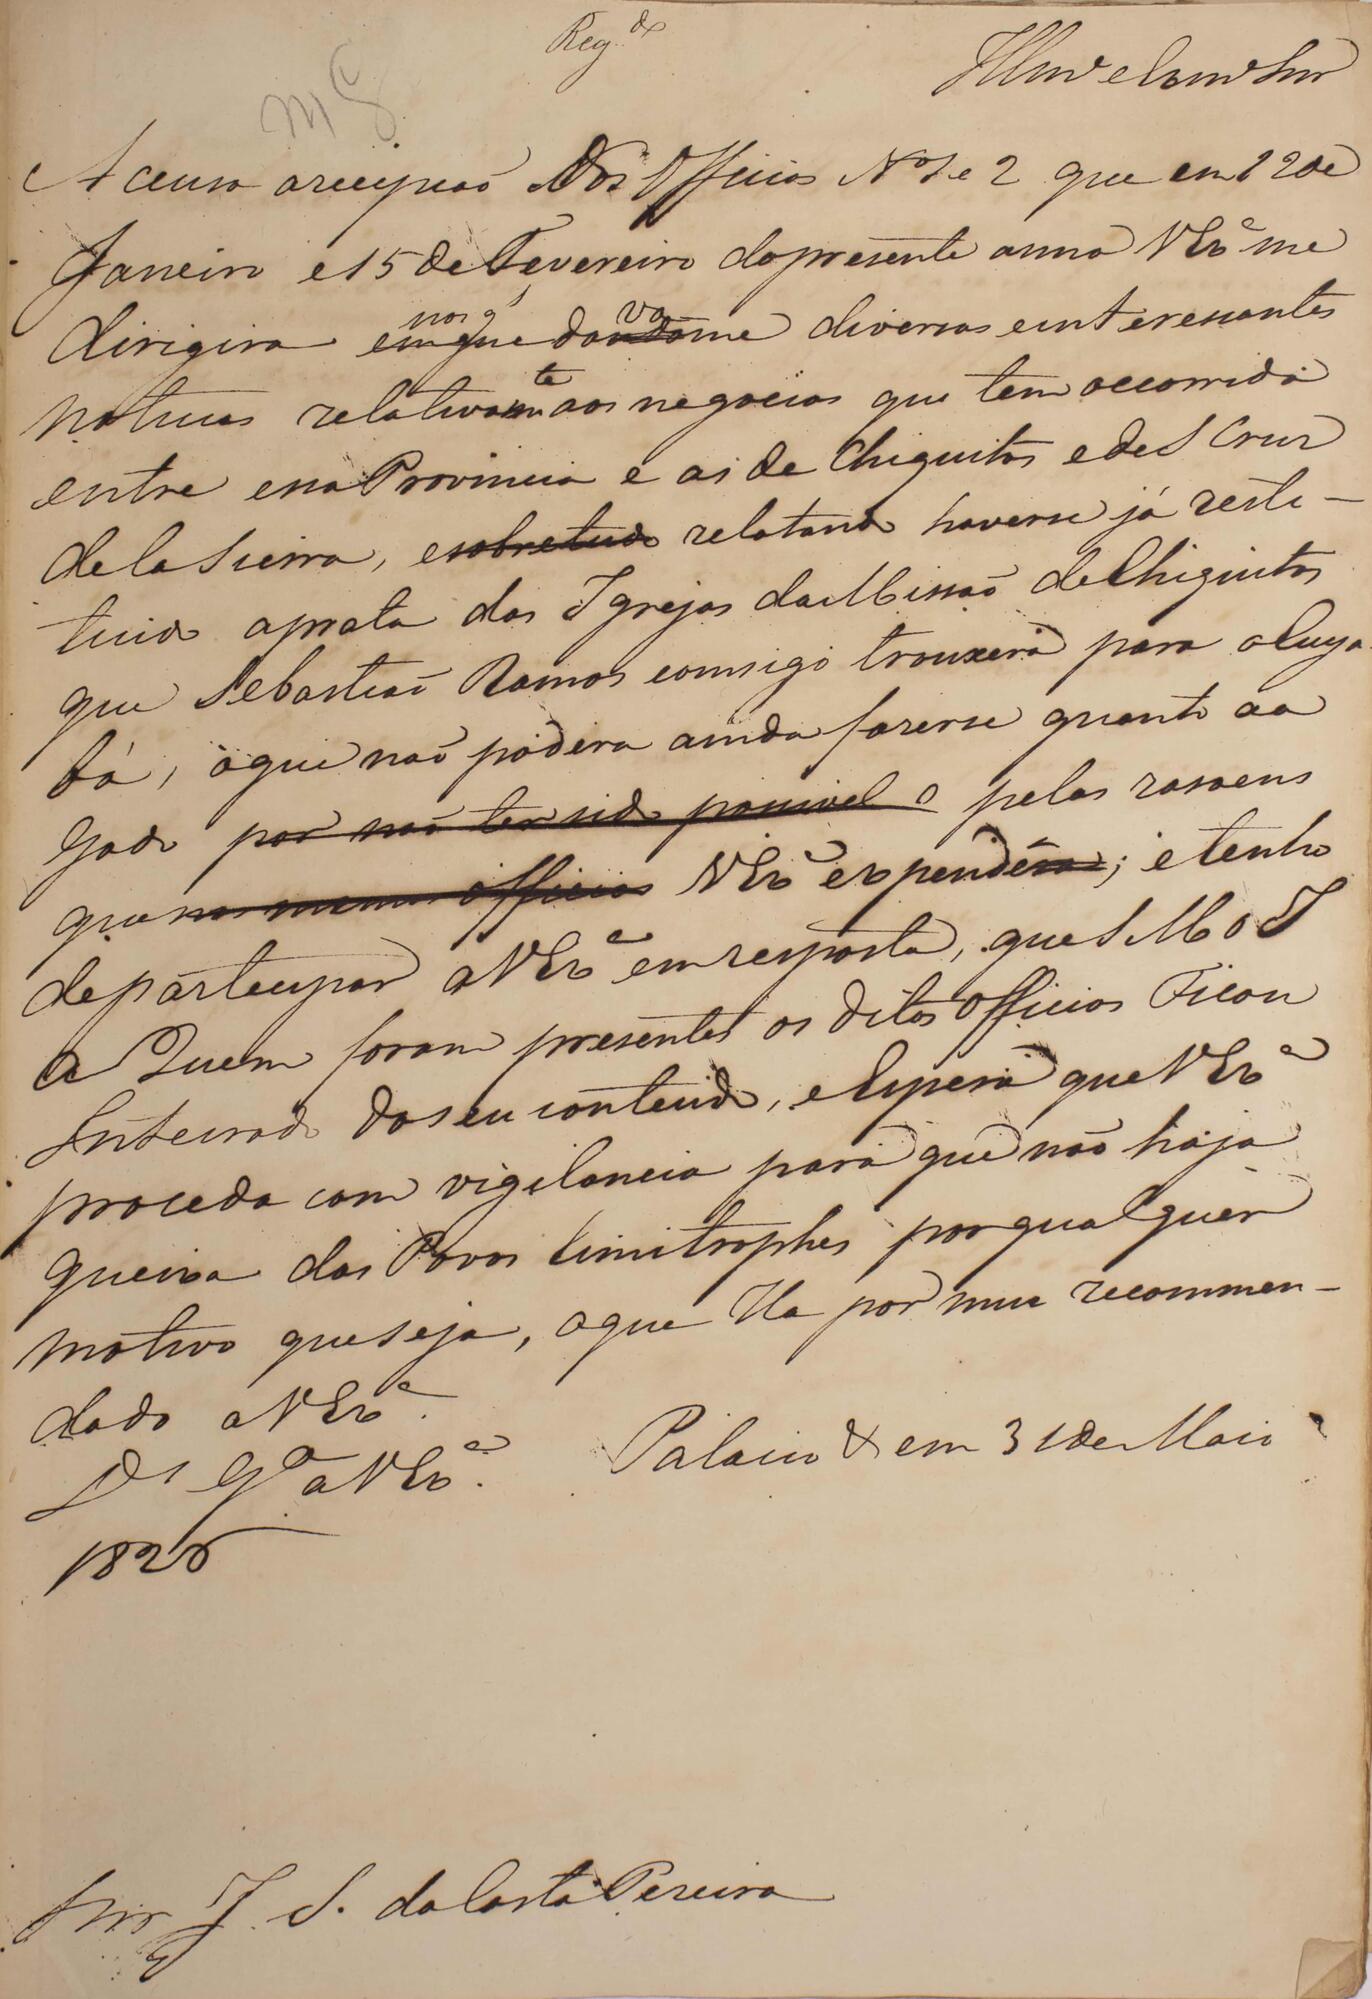 Reg.do
Illmo e Exmo Snr
Accuso a recepçaõ dos Officios Nos 1 e 2 que em 12 de
Janeiro e 15 de Fevereiro do presente anno V Exa me
dirigira em que nos q dando va me diversas e interessantes
noticias relativamte aos negocios que tem occorrido
entre essa Provincia e as de Chiquitos e de S Cruz
de la Sierra, e sobretudo relatando haverse já resti-
tuido a prata das Igrejas da Missaõ de Chiquitos
que Sebastiaõ Ramos comsigo trouxera para o Cuya
bá, o que naõ podera ainda fazerse quanto ao
Gado por naõ ter sido possivel o pelas rasoens
que nos mesmos officios V Exa expendera; e tenho
de partecipar a V Exa em resposta, que S M o I
a Quem foram presentes os ditos Officios Ficou
Inteirado do seu conteudo, e Espera que V Exa
proceda com vigilancia para que naõ haja
queixa dos Povos limitrophes por qualquer
motivo que seja, o que Ha por mui recommen-
dado a V Exa.
Ds Ge a V Exa. Palacio & em 31 de Maio
1826
Snr J. S. da Costa Pereira